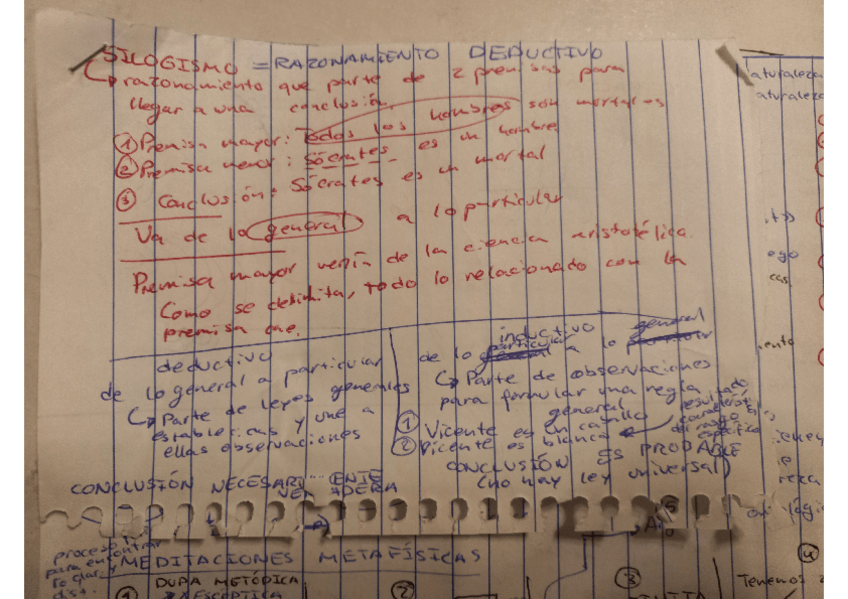 SILOGISMO = RAZONAMIENTO DEDUCTIVO
↳ razonamiento que parte de 2 premisas para
llegar a una conclusión.
① Premisa mayor: Todos los hombres son mortales
② Premisa menor: Sócrates es un hombre
③ Conclusión: Sócrates es un mortal
Va de lo general a lo particular
Premisa mayor venía de la ciencia aristotélica.
Como se debilita, todo lo relacionado con la
premisa cae.
deductivo
de lo general a particular
↳ Parte de leyes generales
establecidas y une a
ellas observaciones
CONCLUSIÓN NECESARI
inductivo
de lo particular a lo general
↳ Parte de observaciones
para formular una regla
general
① Vicente es un caballo
② Vicente es blanco ← resultado
específico
CONCLUSIÓN ES PROBABLE
(no hay ley universal)
aturaleza
aturaleza
ego
cas
proceso
para encontrar
MEDITACIONES METAFÍSICAS
① DUDA METÓDICA
②
③
④
Tenemos